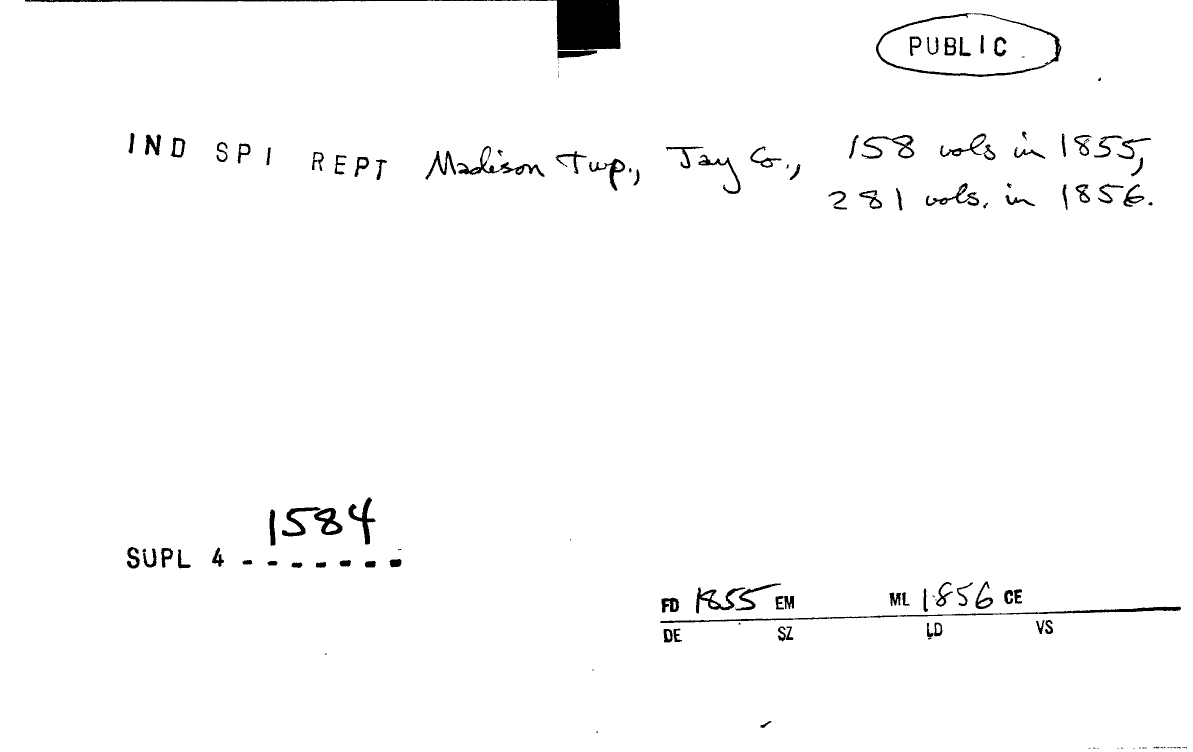 PUBLIC
IND SPI REPT Madison Twp., Jay Co., 158 vols in 1855,
281 vols. in 1856.
1584
SUPL 4 -------
FD 1855 EM ML 1856 CE
DE SZ LD VS